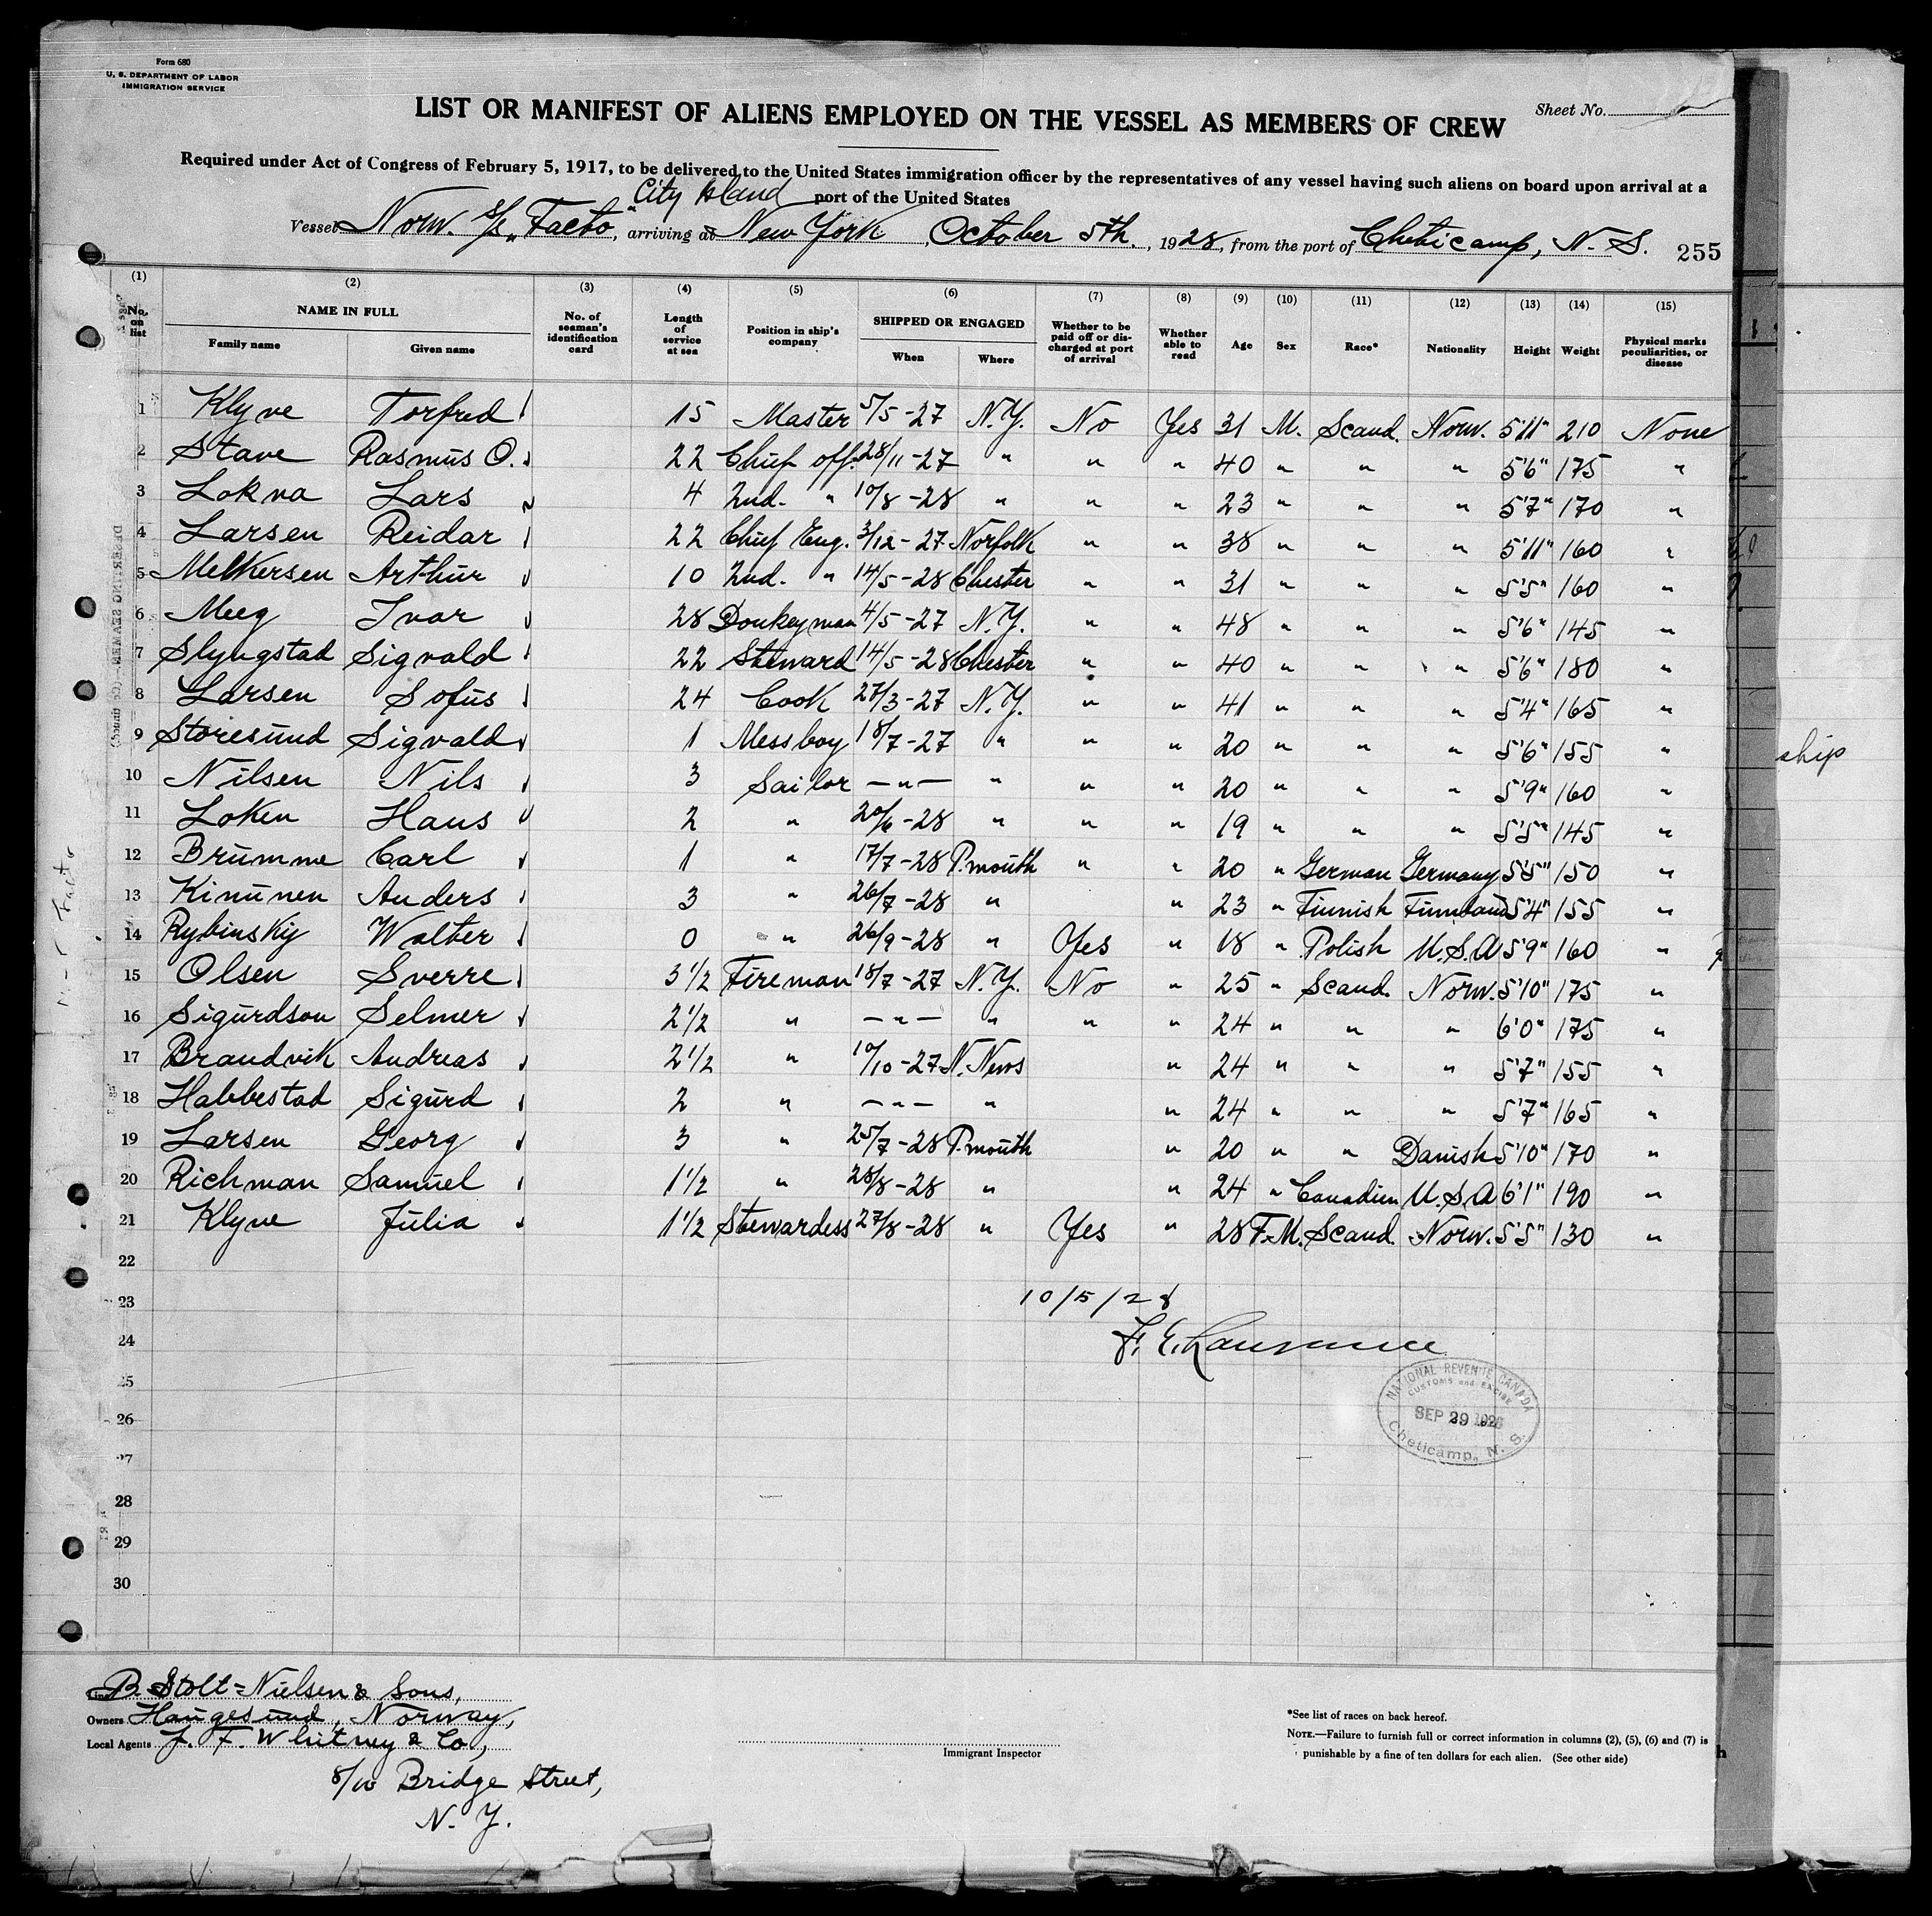 Form 680
U. S. DEPARTMENT OF LABOR
IMMIGRATION SERVICE
Sheet No.
LIST OR MANIFEST OF ALIENS EMPLOYED ON THE VESSEL AS MEMBERS OF CREW
Required under Act of Congress of February 5, 1917, to be delivered to the United States immigration officer by the representatives of any vessel having such aliens on board upon arrival at a
port of the United States
City Island
Vessel Norw. S/S "Facto", arriving at New York, October 5th, 1928, from the port of Cheticamp, N. S. 255
(1) (2) (3) (4) (5) (6) (7) (8) (9) (10) (11) (12) (13) (14) (15)
No. on list NAME IN FULL Family name Given name No. of seaman's identification card Length of service at sea Position in ship's company SHIPPED OR ENGAGED When Where Whether to be paid off or discharged at port of arrival Whether able to read Age Sex Race* Nationality Height Weight Physical marks peculiarities, or disease
1 Klyve Torfred 15 Master 5/5-27 N.Y. No Yes 31 M. Scand. Norw. 5'11" 210 None
2 Stave Rasmus O. 22 Chief off. 28/11-27 " " " 40 " " " 5'6" 175 "
3 Lokna Lars 4 2nd. " 10/8-28 " " " 23 " " " 5'7" 170 "
4 Larsen Reidar 22 Chief Eng. 3/12-27 Norfolk " " 38 " " " 5'11" 160 "
5 Melkersen Arthur 10 2nd. " 14/5-28 Chester " " 31 " " " 5'5" 160 "
6 Meeg Ivar 28 Donkeyman 4/5-27 N.Y. " " 48 " " " 5'6" 145 "
7 Slyngstad Sigvald 22 Steward 14/5-28 Chester " " 40 " " " 5'6" 180 "
8 Larsen Sofus 24 Cook 27/3-27 N.Y. " " 41 " " " 5'4" 165 "
9 Storesund Sigvald 1 Messboy 18/7-27 " " " 20 " " " 5'6" 155 "
10 Nilsen Nils 3 Sailor -"- " " " 20 " " " 5'9" 160 "
11 Loken Hans 2 " 20/6-28 " " " 19 " " " 5'5" 145 "
12 Brumme Carl 1 " 17/7-28 P.mouth " " 20 " German Germany 5'5" 150 "
13 Kinunen Anders 3 " 26/7-28 " " 23 " Finnish Finnland 5'4" 155 "
14 Rybinskiy Walter 0 " 26/9-28 " Yes " 18 " Polish U.S.A 5'9" 160 "
15 Olsen Sverre 3 1/2 Fireman 18/7-27 N.Y. No " 25 " Scand. Norw. 5'10" 175 "
16 Sigurdson Selmer 2 1/2 " -"- " " " 24 " " " 6'0" 175 "
17 Brandvik Andreas 2 1/2 " 10/10-27 N. News " 24 " " " 5'7" 155 "
18 Habbestad Sigurd 2 " -"- " " 24 " " " 5'7" 165 "
19 Larsen Georg 3 " 25/7-28 P.mouth " 20 " " Danish 5'10" 170 "
20 Richman Samuel 1 1/2 " 28/8-28 " " 24 " Canadian U.S.A 6'1" 190 "
21 Klyve Julia 1 1/2 Stewardess 27/8-28 " Yes " 28 F.M. Scand. Norw. 5'5" 130 "
22
23
24
25
26
27
28
29
30
10/5/28
F. E. Lawrence
NATIONAL REVENUE CANADA
CUSTOMS and EXCISE
SEP 29
Cheticamp, N. S.
ship
B. Stolt-Nielsen & Sons,
Owners Haugesund, Norway,
Local Agents J. F. Whitney & Co,
8/10 Bridge Street,
N. Y.
Immigrant Inspector
*See list of races on back hereof.
NOTE.—Failure to furnish full or correct information in columns (2), (5), (6) and (7) is
punishable by a fine of ten dollars for each alien. (See other side)